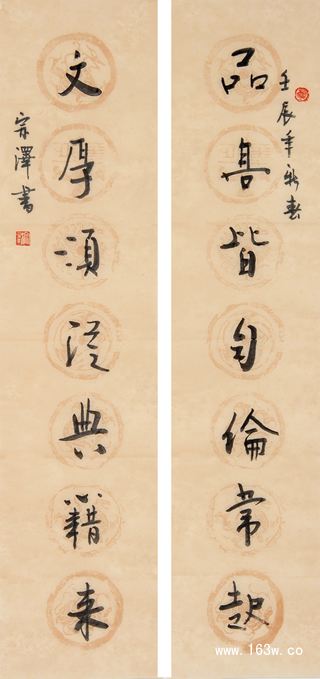 壬辰年新春
品高皆自倫常起
文厚須從典籍来
宗澤書
www.163w.co